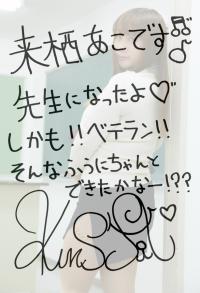 来栖あこです♬♪
先生になったよ♡
しかも!!ベテラン!!
そんなふうにちゃんと
できたかなー!??